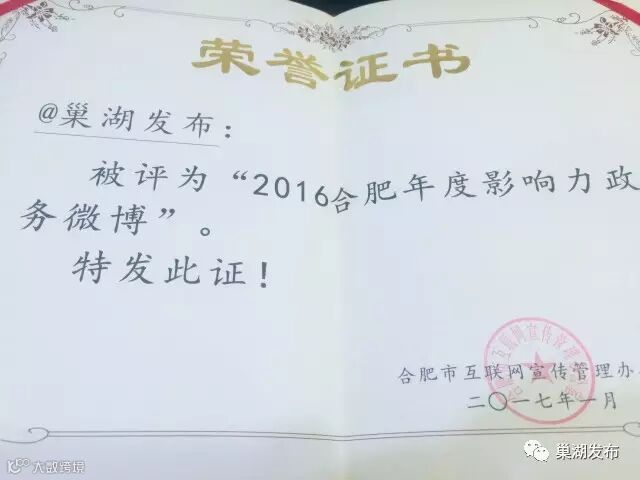 荣誉证书
@巢湖发布：
被评为“2016合肥年度影响力政
务微博”。
特发此证！
合肥市互联网宣传管理办
二〇一七年一月
巢湖发布
大数跨境